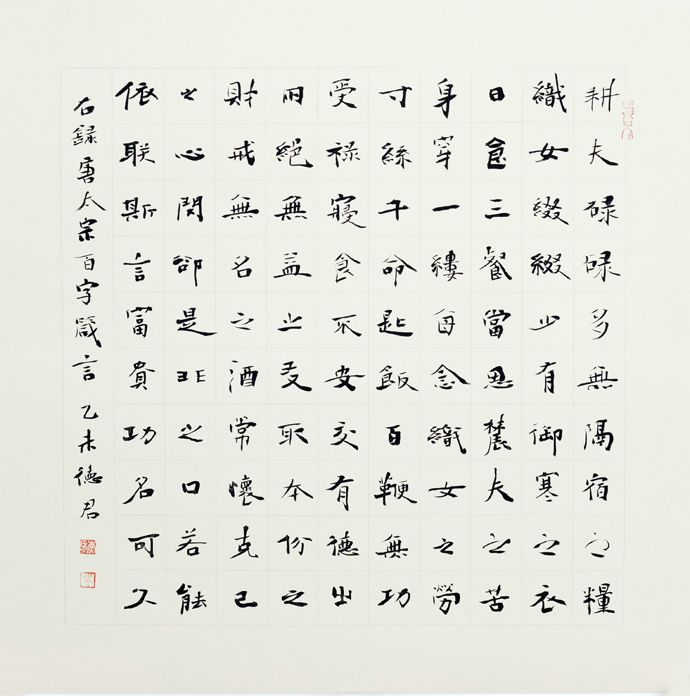 耕夫碌碌多無隔宿之糧
織女綴綴少有御寒之衣
日食三餐當思農夫之苦
身穿一縷每念織女之勞
寸絲千命匙飯百鞭無功
受祿寢食不安交有德之
朋絕無益之友取本份之
財戒無名之酒常懷克己
之心閉卻是非之口若能
依联斯言富貴功名可久
右録唐太宗百字箴言乙未德君